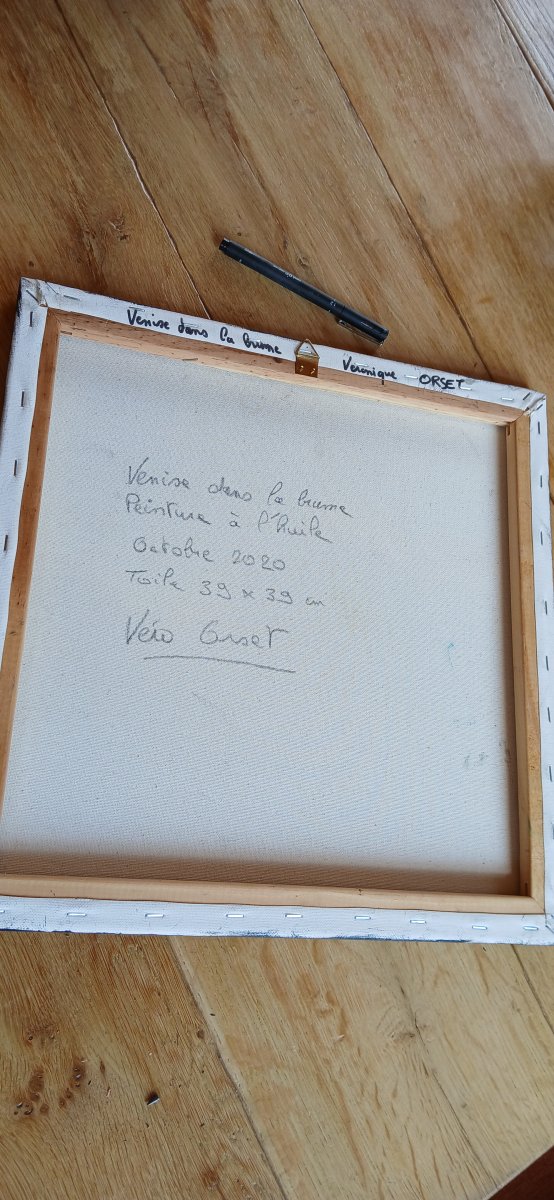 Venise dans la brume Véronique ORSET
Venise dans la brume
Peinture à l'huile
Octobre 2020
Toile 39 x 39 cm
Véro Orset